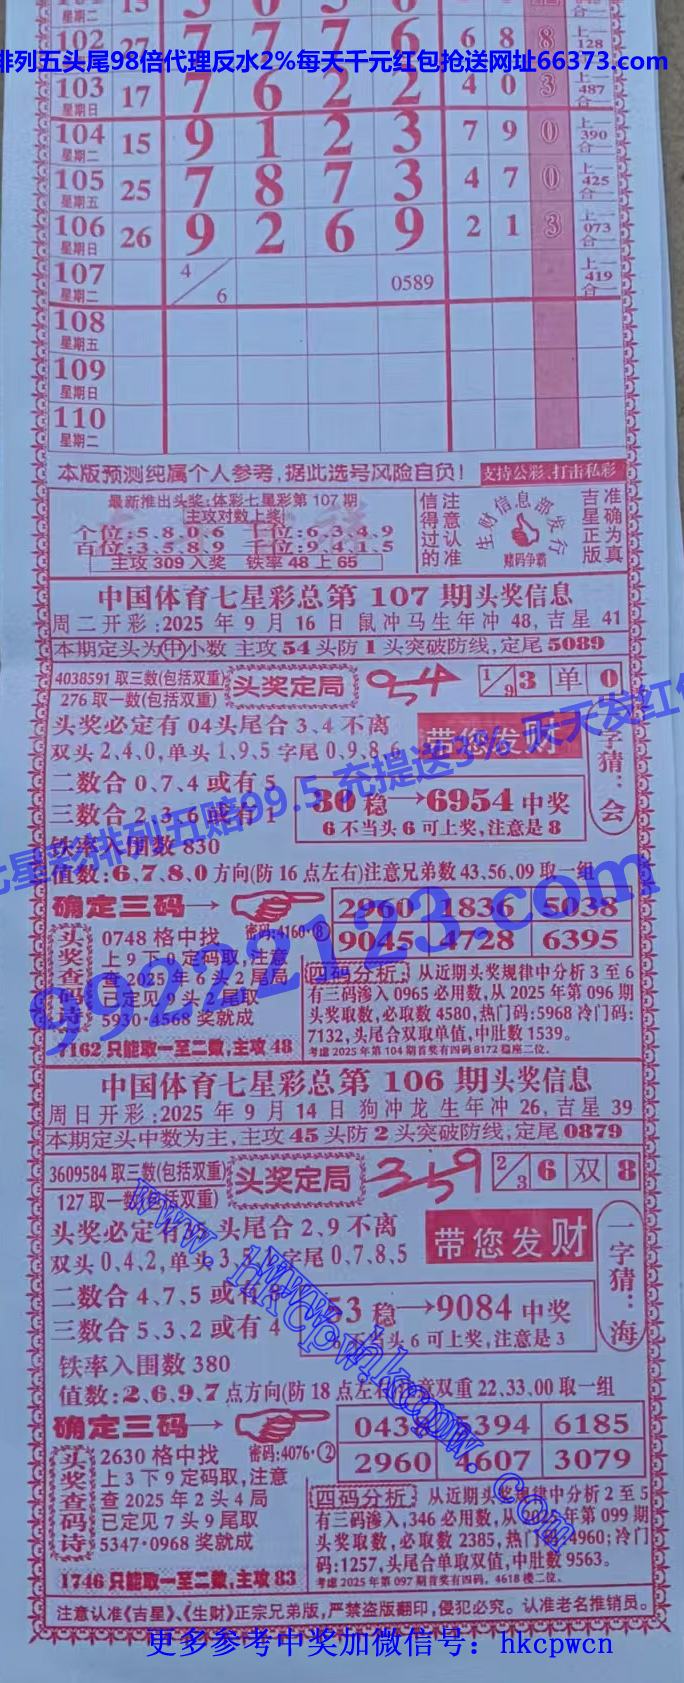 102 星期五 27 7 7 7 6 6 8 8 上一128合一
排列五头尾98倍代理反水2%每天千元红包抢送网址66373.com
103 星期日 17 7 6 2 2 4 0 3 上一487合一
104 星期二 15 9 1 2 3 7 9 0 上一390合一
105 星期五 25 7 8 7 3 4 7 0 上一425合一
106 星期日 26 9 2 6 9 2 1 3 上一073合一
107 星期二 4/6 0589 上一419合一
108 星期五
109 星期日
110 星期二
本版预测纯属个人参考,据此选号风险自负! 支持公彩、打击私彩
最新推出头奖:体彩七星彩第107期
主攻对数上奖
个位:5、8、0、6 十位:6、3、4、9
百位:3、5、8、9 千位:9、4、1、5
主攻309入奖 铁率48上65
信得过的 注意认准
生财信息部发行
赌码争霸
吉星正版 准确为真
中国体育七星彩总第107期头奖信息
周二开彩:2025年9月16日鼠冲马生年冲48,吉星41
本期定头为中小数 主攻54头防1头突破防线,定尾5089
4038591取三数(包括双重)
276取一数(包括双重)
头奖定局
954
1/9 3 单 0
头奖必定有04头尾合3、4不离
双头2,4,0,单头1,9,5字尾0,9,8,6
带您发财
一字猜:会
七星彩排列五赔99.5 充提送3% 天天发红包
二数合0、7、4或有5
三数合2、3、6或有1
80稳→6954中奖
6不当头6可上奖,注意是8
铁率入围数830
值数:6、7、8、0方向(防16点左右)注意兄弟数43,56,09取一组
确定三码→
密码:4160·⑧
2960 1836 5038
9045 4728 6395
头奖查码诗
0748格中找
上9下0定码取,注意
查2025年6头2尾局
已定见9头2尾取
5930·4568奖就成
7162只能取一至二数,主攻48
四码分析:从近期头奖规律中分析3至6
有三码渗入0965必用数,从2025年第096期
头奖取数,必取数4580,热门码:5968冷门码:
7132,头尾合双取单值,中肚数1539。
考虑2025年第104期首奖有四码8172稳座二位。
99222123.com
中国体育七星彩总第106期头奖信息
周日开彩:2025年9月14日狗冲龙生年冲26,吉星39
本期定头中数为主,主攻45头防2头突破防线,定尾0879
3609584取三数(包括双重)
127取一数(包括双重)
头奖定局
359
2/3 6 双 8
头奖必定有 头尾合2、9不离
双头0,4,2,单头3,5, 字尾0,7,8,5
带您发财
一字猜:海
二数合4、7、5或有
三数合5、3、2或有4
53稳→9084中奖
不当头6可上奖,注意是3
铁率入围数380
值数:2、6、9、7点方向(防18点左右)注意双重22,33,00取一组
确定三码→
密码:4076·②
043 5394 6185
2960 4607 3079
头奖查码诗
2630格中找
上3下9定码取,注意
查2025年2头4局
已定见7头9尾取
5347·0968奖就成
1746只能取一至二数,主攻83
四码分析:从近期头奖规律中分析2至5
有三码渗入,346必用数,从 年第099期
头奖取数,必取数2385,热门码:4960;冷门
码:1257,头尾合单取双值,中肚数9563。
考虑2025年第097期首奖有四码,4618稳二位。
www.hkcpw.com
www.hkcpw.com
注意认准《吉星》、《生财》正宗兄弟版,严禁盗版翻印,侵犯必究。认准老名推销员。
更多参考中奖加微信号:hkcpwcn